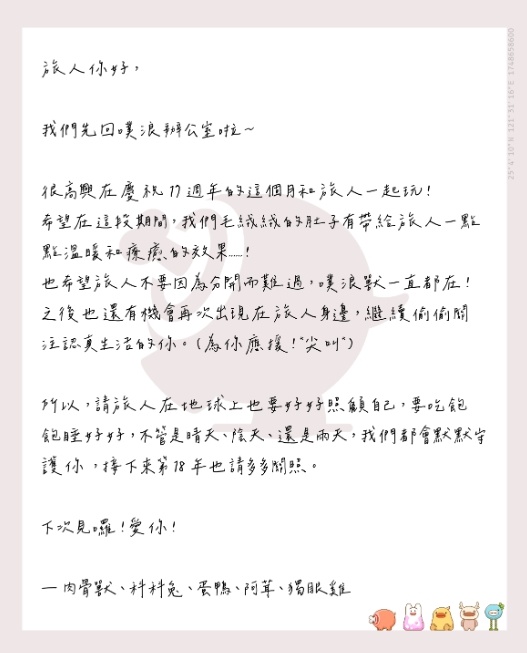 旅人你好，
我們先回噗浪辦公室啦～
很高興在慶祝17週年的這個月和旅人一起玩！
希望在這段期間，我們毛絨絨的肚子有帶給旅人一點
點溫暖和療癒的效果……！
也希望旅人不要因為分開而難過，噗浪獸一直都在！
之後也還有機會再次出現在旅人身邊，繼續偷偷關
注認真生活的你。（為你應援！"尖叫"）
所以，請旅人在地球上也要好好照顧自己，要吃飽
飽睡好好，不管是晴天、陰天、還是雨天，我們都會默默守
護你，接下來第18年也請多多關照。
下次見囉！愛你！
— 肉骨獸、科科兔、蛋鴨、阿茸、獨眼雞
25°4'10"N 121°31'16"E 1748658600